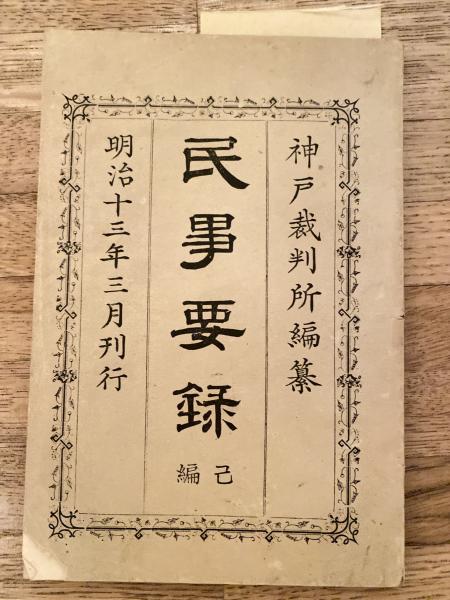 神戸裁判所編纂
民事要録
己編
明治十三年三月刊行